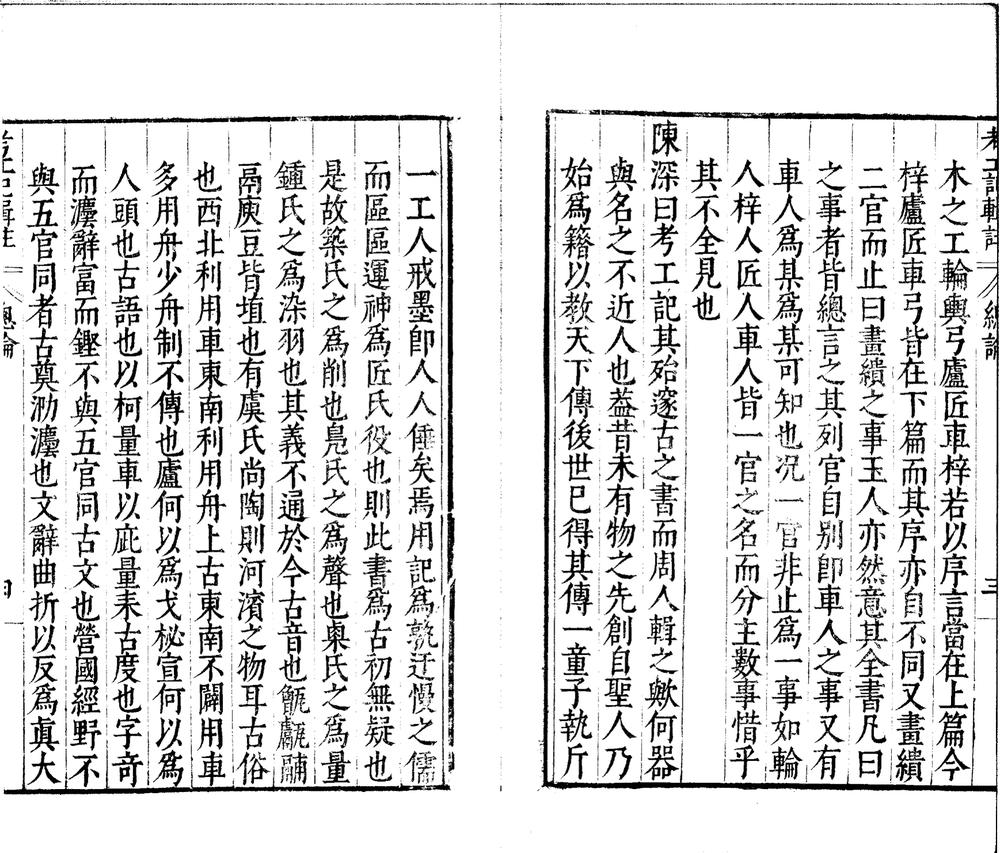 考工記輯註 總論 三
木之工輪輿弓廬匠車梓若以序言當在上篇今
梓廬匠車弓皆在下篇而其序亦自不同又畫繢
二官而止曰畫繢之事玉人亦然意其全書凡曰
之事者皆總言之其列官自别卽車人之事又有
車人爲某爲某可知也况一官非止爲一事如輪
人梓人匠人車人皆一官之名而分主數事惜乎
其不全見也
陳深曰考工記其殆邃古之書而周人輯之歟何器
與名之不近人也葢昔未有物之先創自聖人乃
始爲籍以教天下傳後世已得其傳一童子執斤
一工人戒墨卽人人倕矣焉用記爲訰迂慢之儒
而區區運神爲匠氏役也則此書爲古初無疑也
是故築氏之爲削也鳧氏之爲聲也㮚氏之爲量
鍾氏之爲染羽也其義不通於今古音也甗鬳鬴
鬲庾豆皆埴也有虞氏尚陶則河濱之物耳古俗
也西北利用車東南利用舟上古東南不闢用車
多用舟少舟制不傳也廬何以爲戈柲宣何以爲
人頭也古語也以柯量車以庛量耒古度也字奇
而灋辭富而鏗不與五官同古文也營國經野不
與五官同者古奠泐灋也文辭曲折以反爲眞大
考工記輯註 總論 四